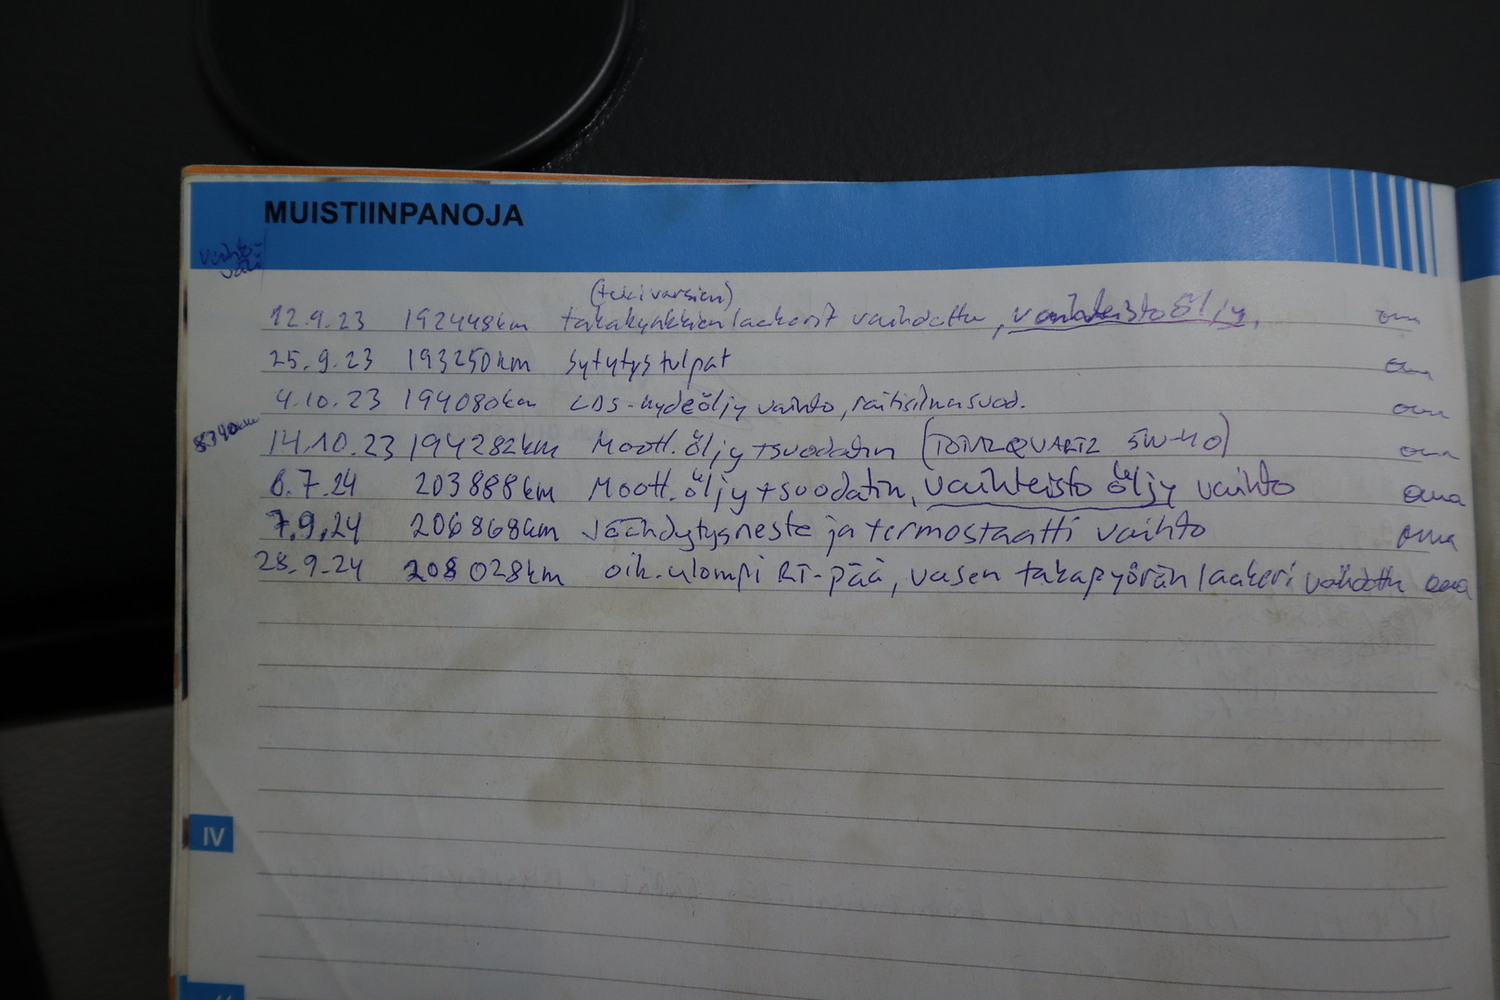 MUISTIINPANOJA
Vaihto-
väli
(tukivarsien)
12.9.23 192448km takakynkkien laakerit vaihdettu, vaihteistoöljy. oma
25.9.23 193250km sytytystulpat oma
4.10.23 194080km LDS-hydeöljy vaihto, raitisilmasuod. oma
8340km
14.10.23 194282km Moott. öljy + suodatin (TOTAL QUARTZ 5W-40) oma
6.7.24 203888km Moott. öljy + suodatin, vaihteisto öljy vaihto oma
7.9.24 206868km Jäähdytysneste ja termostaatti vaihto oma
28.9.24 208028km oik. ulompi RT-pää, vasen takapyörän laakeri vaihdettu oma
IV